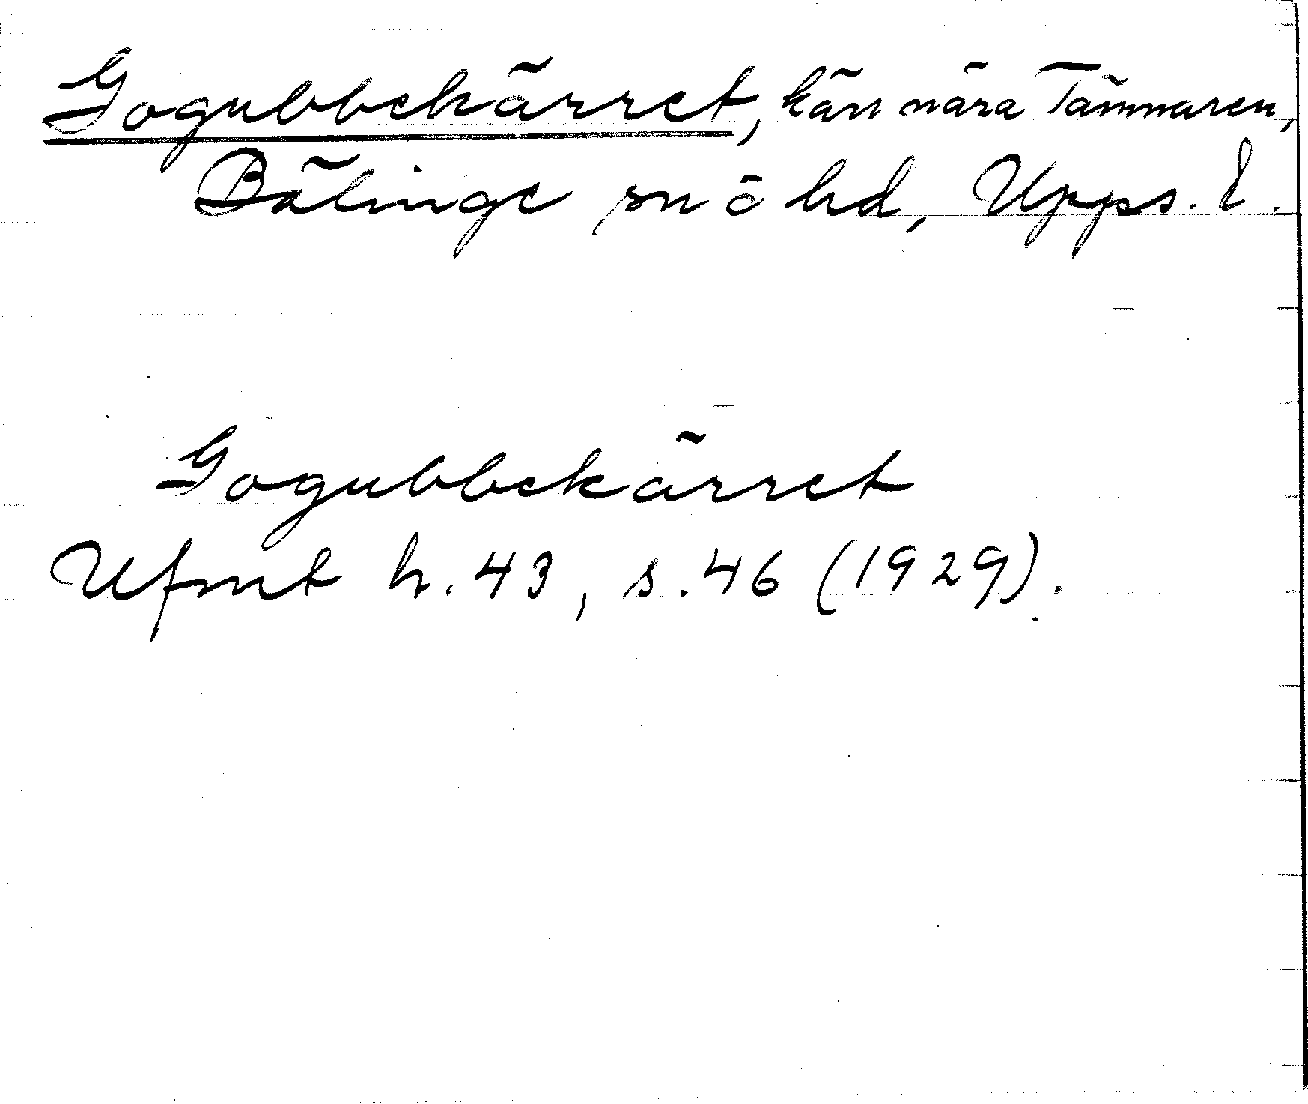 Gogubbekärret, kärr nära Tämnaren,
Bälinge sn o hd, Upps. l.
Gogubbekärret
Ufmt h. 43, s. 46 (1929).